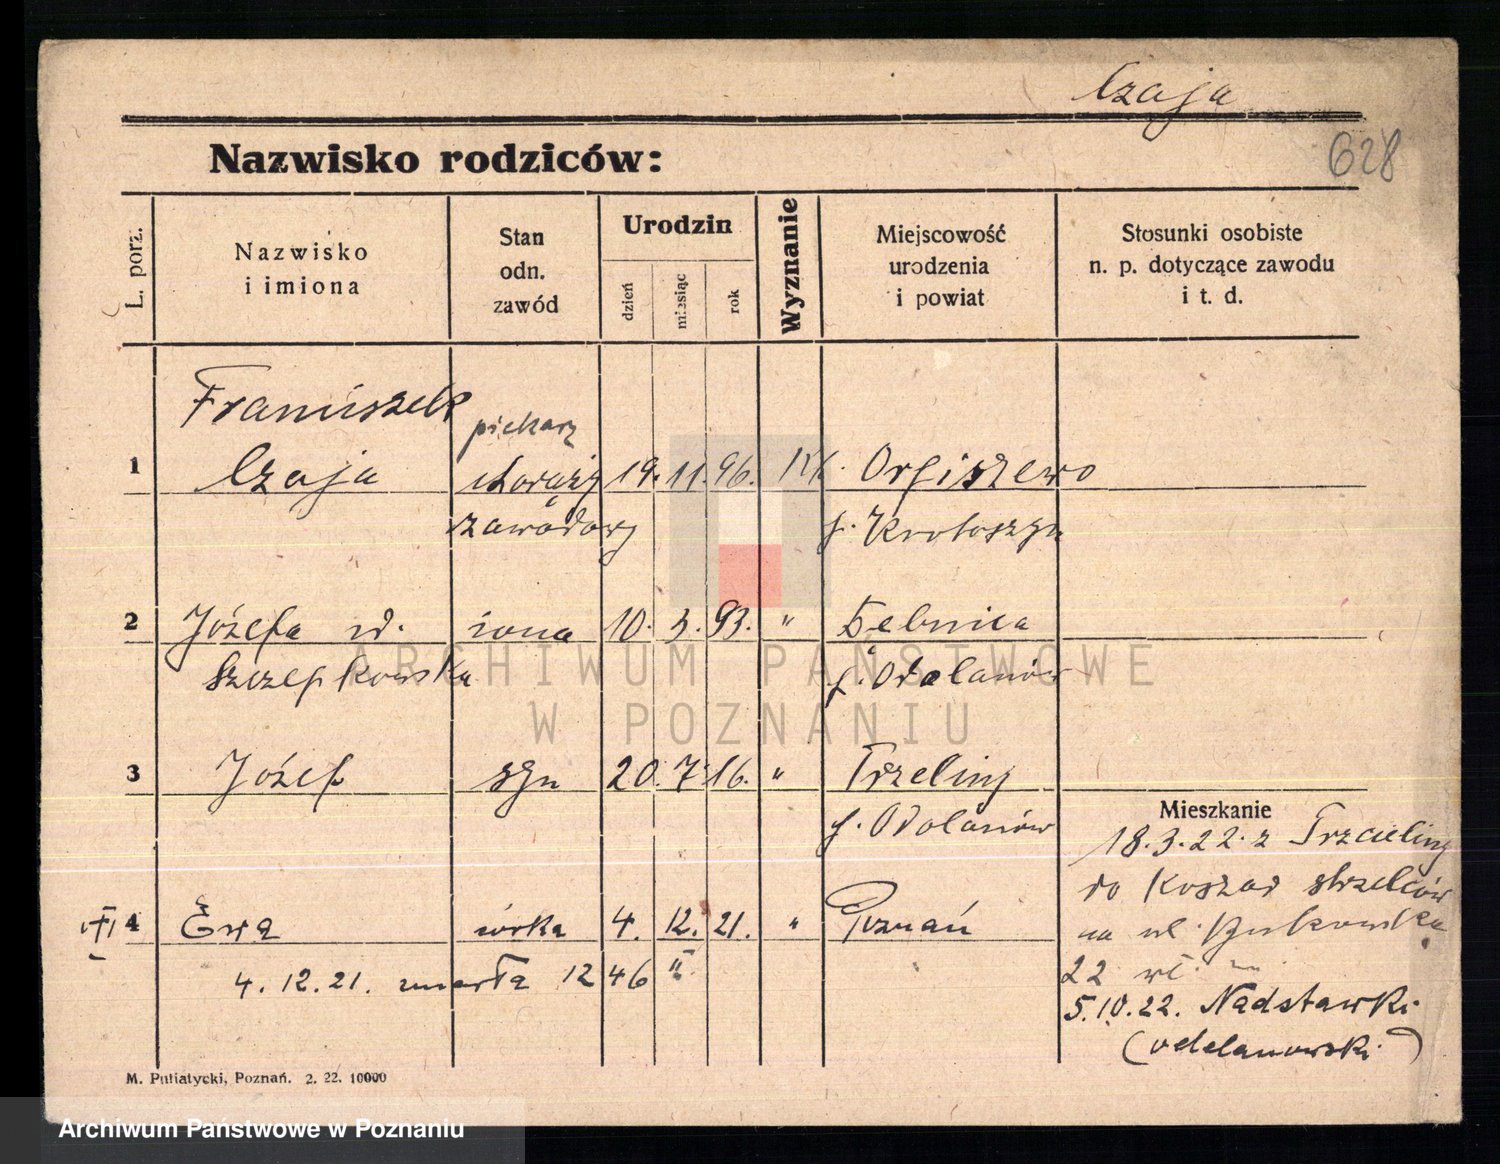 Czaja
628
Nazwisko rodziców:
L. porz.
Nazwisko
i imiona
Stan
odn.
zawód
Urodzin
dzień
miesiąc
rok
Wyznanie
Miejscowość
urodzenia
i powiat
Stosunki osobiste
n. p. dotyczące zawodu
i t. d.
Franciszek piekarz
1 Czaja chorąży 19. 11. 96. Orpiszewo
zawodowy p. Krotoszyn
2 Józefa żona 10. 3. 93. " Dębnica
Szczepkowska p. Odolanów
3 Józef syn 20. 7. 16. " Trzeliny
p. Odolanów
Mieszkanie
18.3.22. z Trzcieliny
do Koszar strzelców
4 Ewa córka 4. 12. 21. " Poznań
na ul. Bukowska
4. 12. 21. zmarła 12 46
22
5.10.22. Nadstawki
(odolanowski)
M. Putiatycki, Poznań. 2. 22. 10000
ARCHIWUM PAŃSTWOWE
W POZNANIU
Archiwum Państwowe w Poznaniu